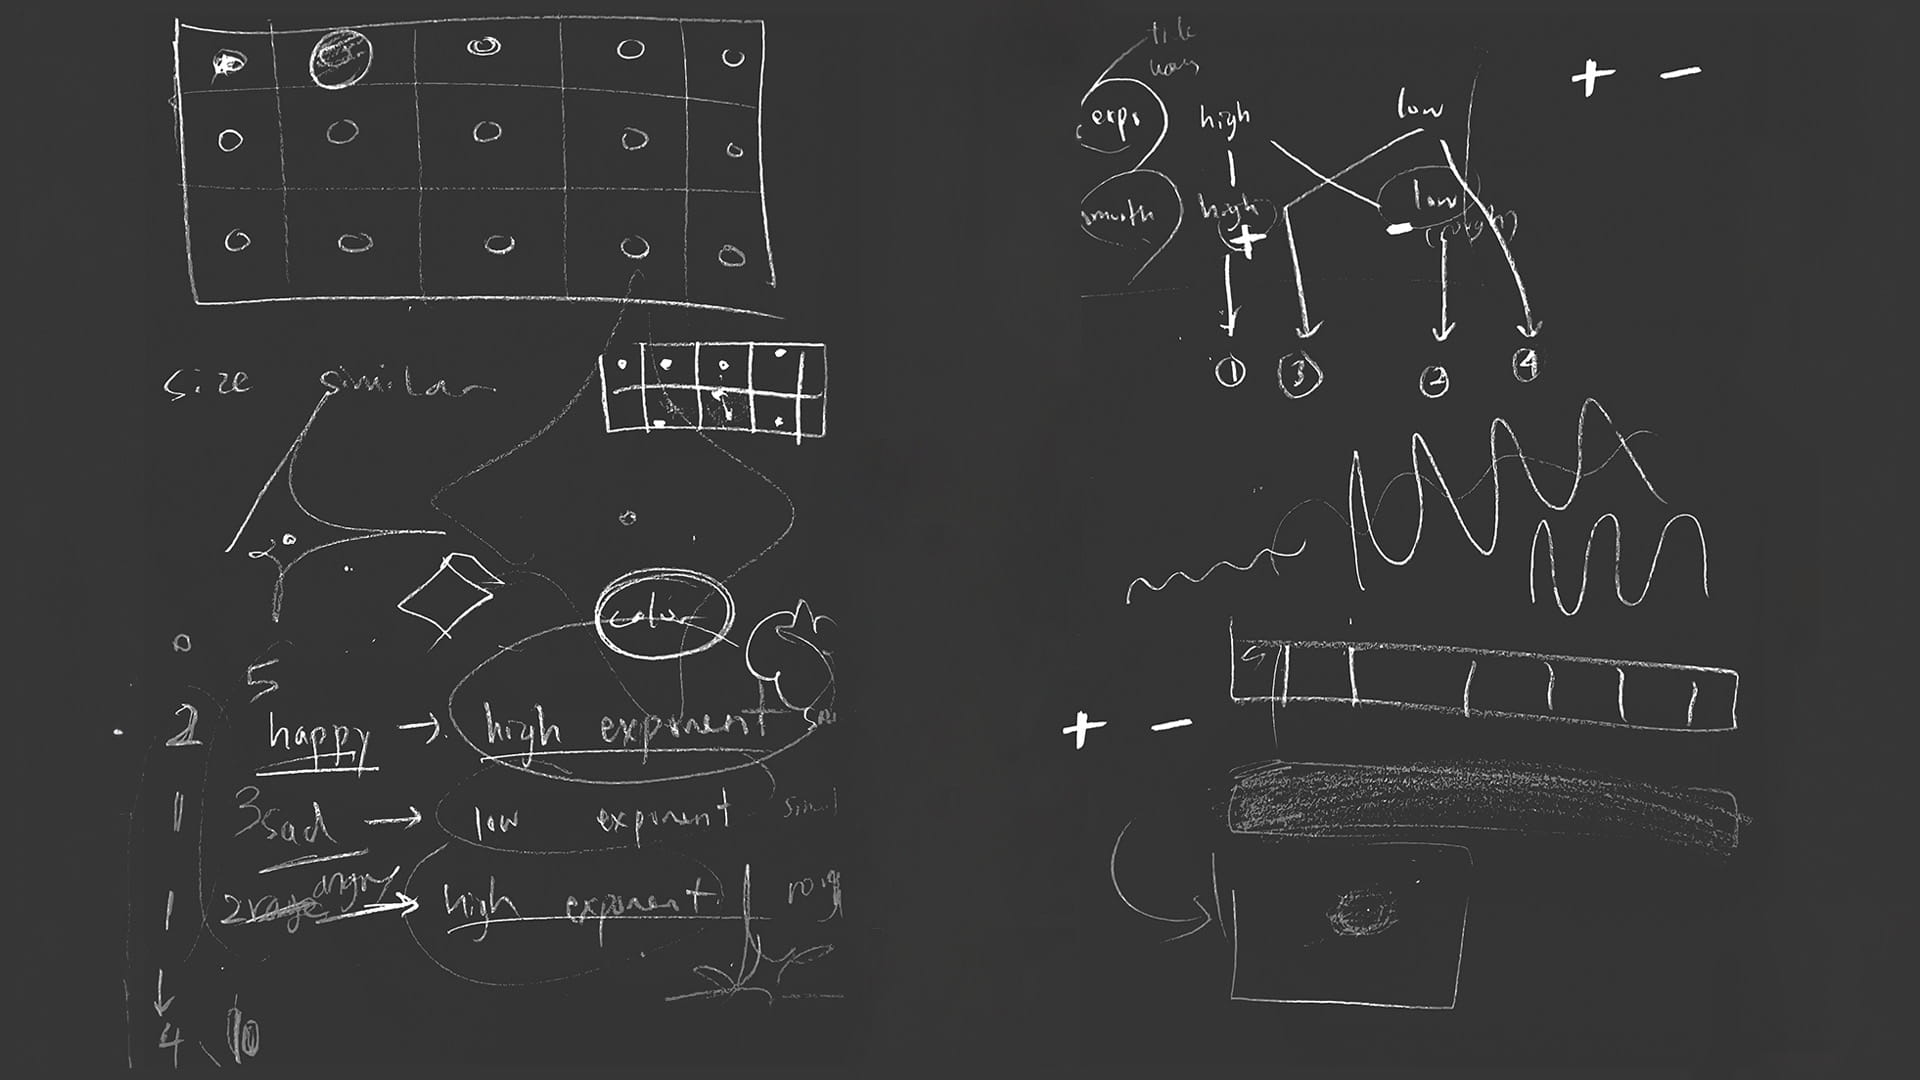 size similar
color
5
2 happy → high exponent
3 sad → low exponent
2 angry → high exponent
4 10
+ -
expo high low
smooth high low
+ -
1 3 2 4
+ -